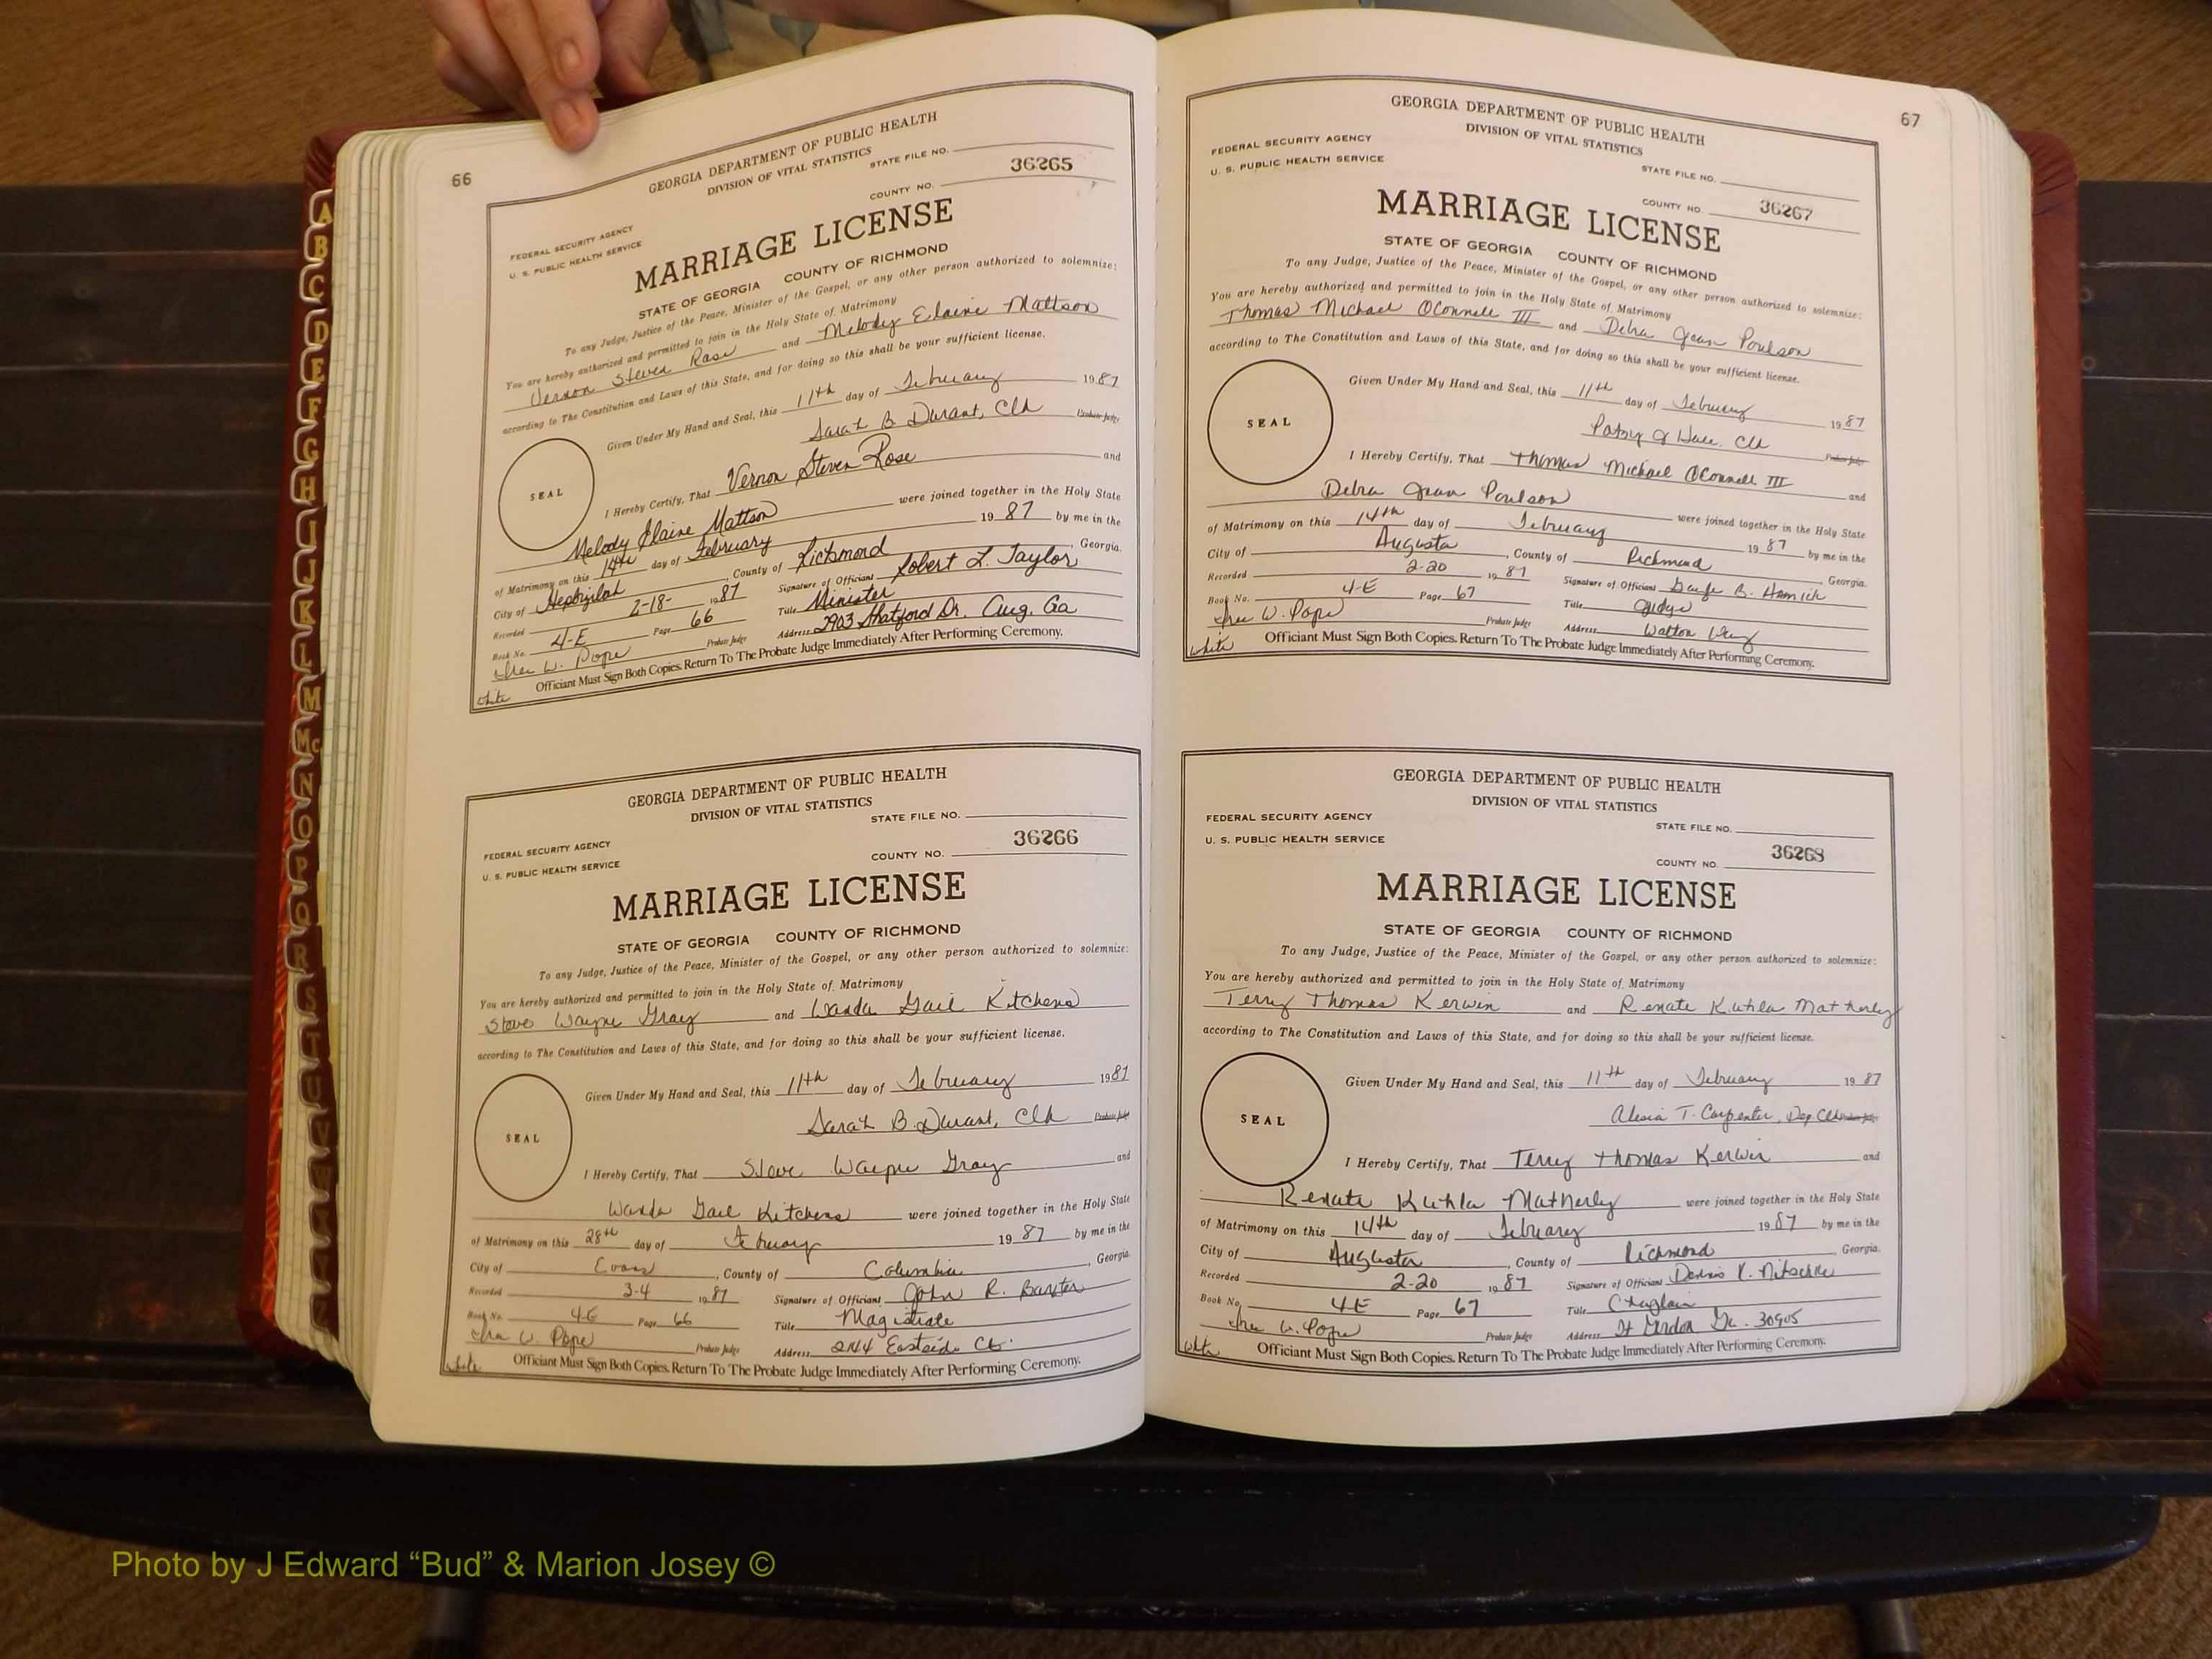 66
GEORGIA DEPARTMENT OF PUBLIC HEALTH
DIVISION OF VITAL STATISTICS
STATE FILE NO.
36265
COUNTY NO.
FEDERAL SECURITY AGENCY
U. S. PUBLIC HEALTH SERVICE
MARRIAGE LICENSE
STATE OF GEORGIA COUNTY OF RICHMOND
To any Judge, Justice of the Peace, Minister of the Gospel, or any other person authorized to solemnize:
You are hereby authorized and permitted to join in the Holy State of Matrimony
Vernon Steven Rose and Melody Elaine Mattson
according to The Constitution and Laws of this State, and for doing so this shall be your sufficient license.
Given Under My Hand and Seal, this 11th day of February 1987
Sarah B. Durant, Clk Probate Judge
SEAL
I Hereby Certify, That Vernon Steven Rose and
Melody Elaine Mattson were joined together in the Holy State
of Matrimony on this 14th day of February 1987 by me in the
City of Hephzibah, County of Richmond, Georgia.
Recorded 2-18- 1987 Signature of Officiant Robert L. Taylor
Book No. 4-E Page 66 Title Minister
W. Pope Probate Judge Address 2903 Dr. Aug. Ga
Officiant Must Sign Both Copies. Return To The Probate Judge Immediately After Performing Ceremony.
white
GEORGIA DEPARTMENT OF PUBLIC HEALTH
DIVISION OF VITAL STATISTICS
STATE FILE NO.
36266
COUNTY NO.
FEDERAL SECURITY AGENCY
U. S. PUBLIC HEALTH SERVICE
MARRIAGE LICENSE
STATE OF GEORGIA COUNTY OF RICHMOND
To any Judge, Justice of the Peace, Minister of the Gospel, or any other person authorized to solemnize:
You are hereby authorized and permitted to join in the Holy State of Matrimony
Steve Wayne Gray and Wanda Gail Kitchens
according to The Constitution and Laws of this State, and for doing so this shall be your sufficient license.
Given Under My Hand and Seal, this 11th day of February 1987
Sarah B. Durant, Clk Probate Judge
SEAL
I Hereby Certify, That Steve Wayne Gray and
Wanda Gail Kitchens were joined together in the Holy State
of Matrimony on this 28th day of February 1987 by me in the
City of Evans, County of Columbia, Georgia.
Recorded 3-4 1987 Signature of Officiant John R. Baxter
Book No. 4-E Page 66 Title Magistrate
W. Pope Probate Judge Address Eastside Ct.
white
Officiant Must Sign Both Copies. Return To The Probate Judge Immediately After Performing Ceremony.
67
GEORGIA DEPARTMENT OF PUBLIC HEALTH
DIVISION OF VITAL STATISTICS
FEDERAL SECURITY AGENCY
U. S. PUBLIC HEALTH SERVICE
STATE FILE NO.
COUNTY NO. 36267
MARRIAGE LICENSE
STATE OF GEORGIA COUNTY OF RICHMOND
To any Judge, Justice of the Peace, Minister of the Gospel, or any other person authorized to solemnize:
You are hereby authorized and permitted to join in the Holy State of Matrimony
Thomas Michael OConnell III and Debra Jean Poulson
according to The Constitution and Laws of this State, and for doing so this shall be your sufficient license.
Given Under My Hand and Seal, this 11th day of February 1987
Patsy Clk Probate Judge
SEAL
I Hereby Certify, That Thomas Michael OConnell III and
Debra Jean Poulson were joined together in the Holy State
of Matrimony on this 14th day of February 1987 by me in the
City of Augusta, County of Richmond, Georgia.
Recorded 2-20 1987 Signature of Officiant B. Hamrick
Book No. 4-E Page 67 Title Judge
W. Pope Probate Judge Address Walton Way
white
Officiant Must Sign Both Copies. Return To The Probate Judge Immediately After Performing Ceremony.
GEORGIA DEPARTMENT OF PUBLIC HEALTH
DIVISION OF VITAL STATISTICS
FEDERAL SECURITY AGENCY
STATE FILE NO.
U. S. PUBLIC HEALTH SERVICE
COUNTY NO. 36268
MARRIAGE LICENSE
STATE OF GEORGIA COUNTY OF RICHMOND
To any Judge, Justice of the Peace, Minister of the Gospel, or any other person authorized to solemnize:
You are hereby authorized and permitted to join in the Holy State of Matrimony
Terry Thomas Kerwin and Renate Kuhla Matherly
according to The Constitution and Laws of this State, and for doing so this shall be your sufficient license.
Given Under My Hand and Seal, this 11th day of February 1987
Alesia T. Carpenter, Dep Clk
SEAL
I Hereby Certify, That Terry Thomas Kerwin and
Renate Kuhla Matherly were joined together in the Holy State
of Matrimony on this 14th day of February 1987 by me in the
City of Augusta, County of Richmond, Georgia.
Recorded 2-20 1987 Signature of Officiant Dennis K. Nitschke
Book No. 4-E Page 67 Title Chaplain
W. Pope Probate Judge Address Ft Gordon Ga. 30905
white
Officiant Must Sign Both Copies. Return To The Probate Judge Immediately After Performing Ceremony.
A
B
C
D
E
F
G
H
I
J
K
L
M
Mc
N
O
P
Q
R
S
T
U
V
Photo by J Edward “Bud” & Marion Josey ©